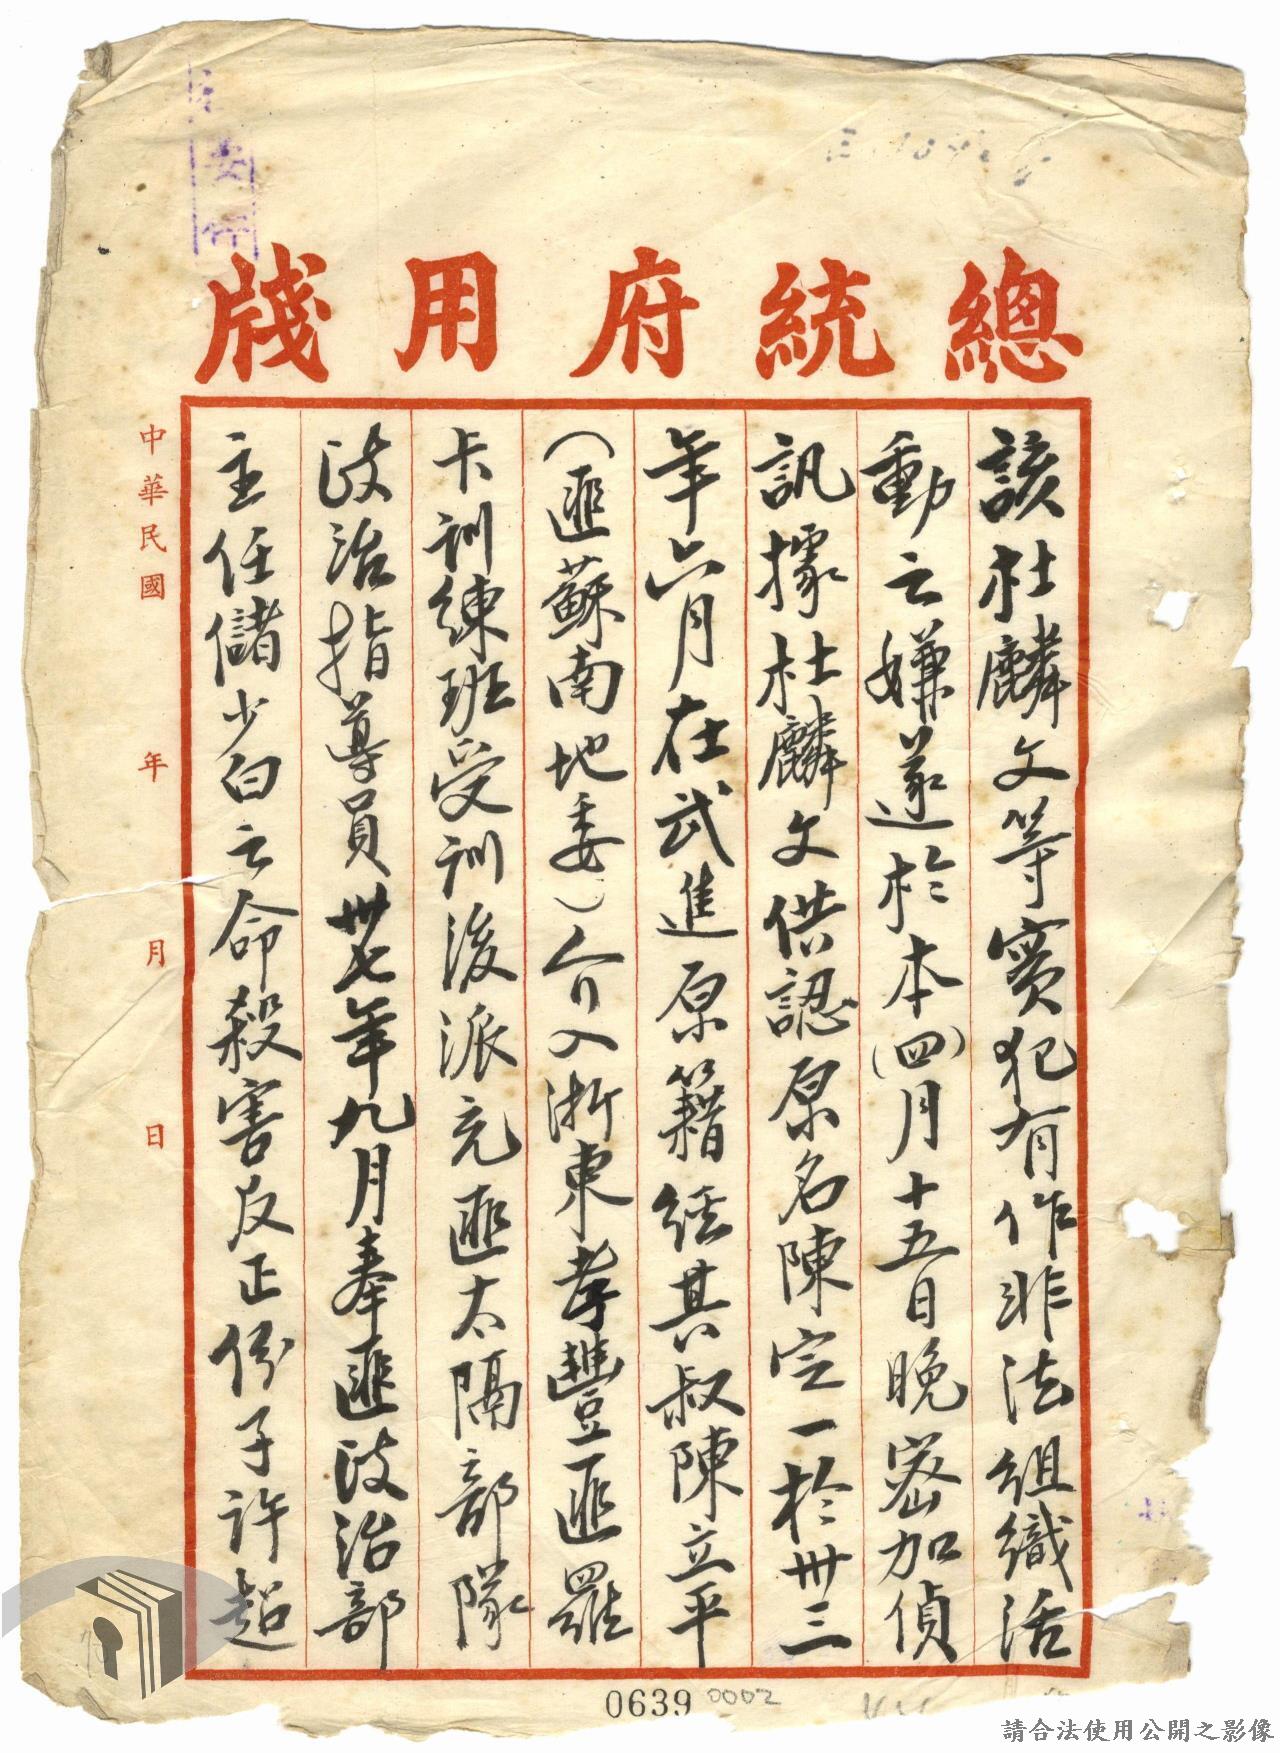 總統府用牋
該杜麟文等實犯有作非法組織活
動之嫌遂於本(四)月十五日晚密加偵
訊據杜麟文供認原名陳定一於卅三
年六月在武進原籍經其叔陳立平
(匪蘇南地委)介入浙東孝豐匪羅
卡訓練班受訓後派充匪太隔部隊
政治指導員卅七年九月奉匪政治部
主任儲少白之命殺害反正份子許超
中華民國 年 月 日
0639 0002
請合法使用公開之影像